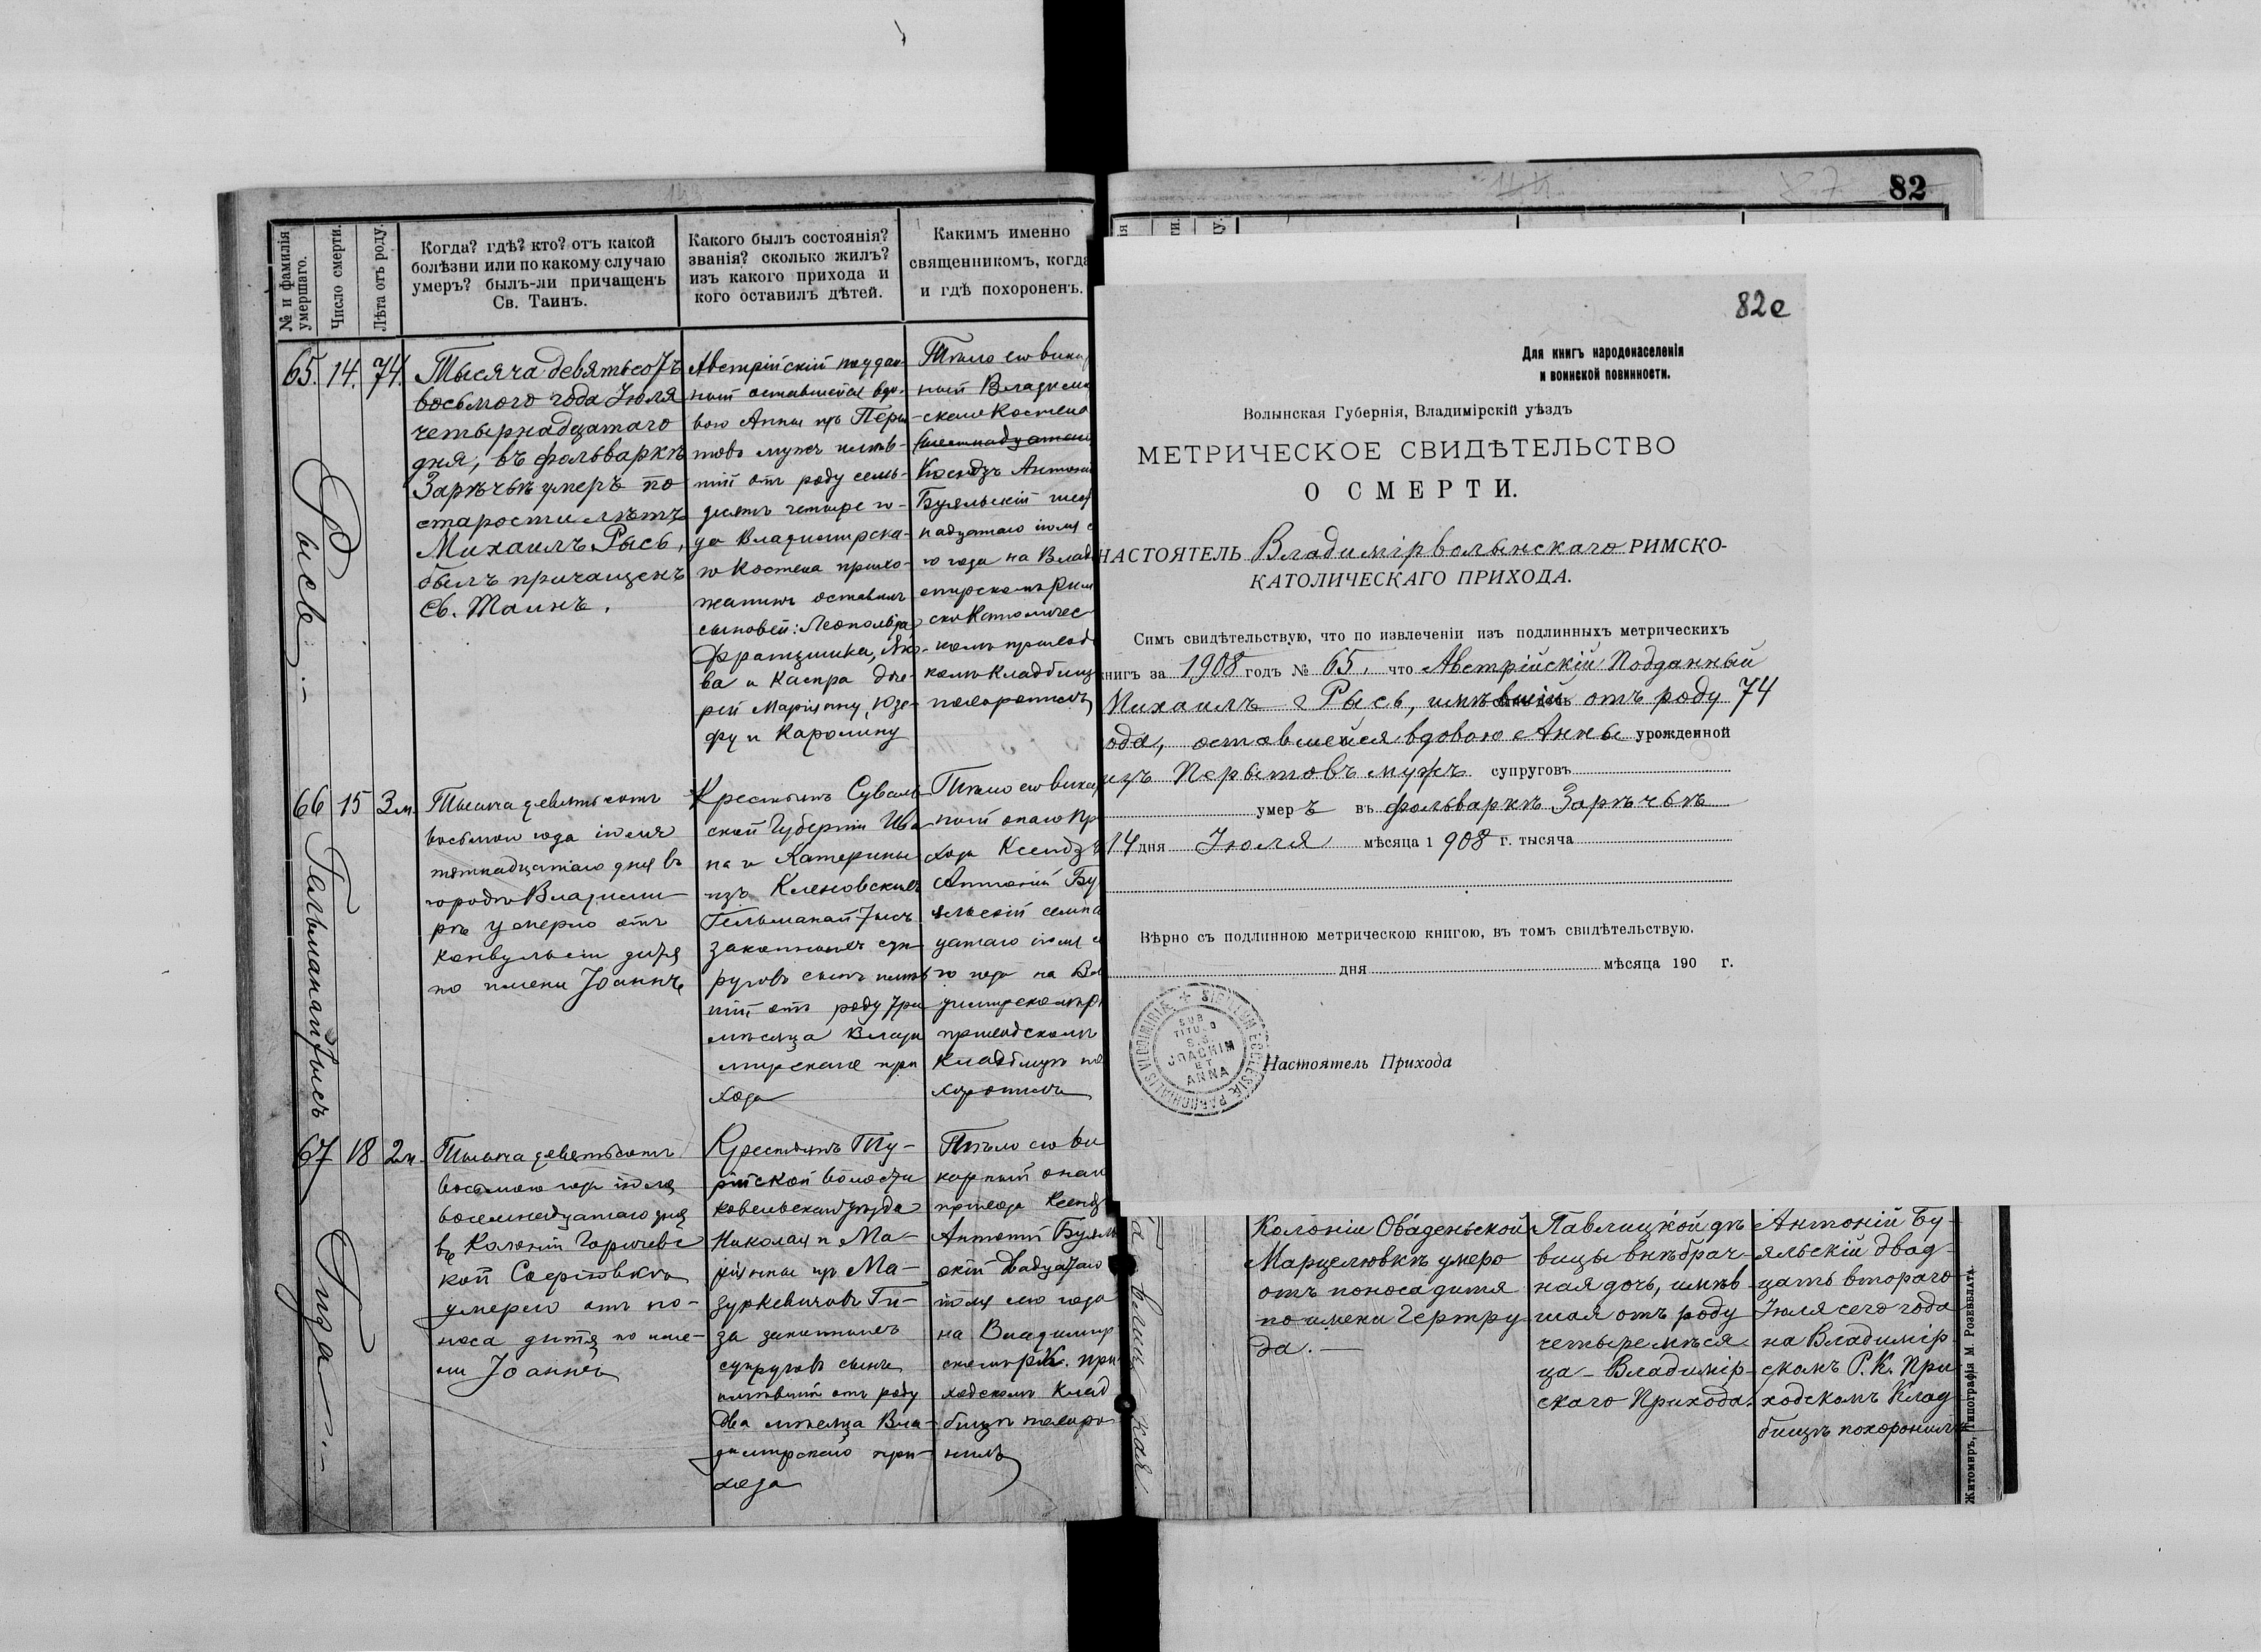 82
№ и фамилія умершаго.
Число смерти.
Лѣта отъ роду.
Когда? гдѣ? кто? отъ какой
болѣзни или по какому случаю
умеръ? былъ-ли причащенъ
Св. Таинъ.
Какого былъ состоянія?
званія? сколько жилъ?
изъ какого прихода и
кого оставилъ дѣтей.
Какимъ именно
священникомъ, когда
и гдѣ похороненъ.
65.
Рысь
14.
74.
Тысяча девятьсотъ
восьмого года Іюля
четырнадцатаго
дня, въ фольваркѣ
Зарѣчьѣ умеръ по
старости лѣтъ
Михаилъ Рысь,
былъ причащенъ
Св. Таинъ.
Австрійскій поддан-
ный оставшейся вдо-
вою Анны изъ Перы
товъ мужъ имѣв-
шій отъ роду семь-
десятъ четыре го-
да Владимірска-
го Костела прихо-
жанинъ оставилъ
сыновей: Леопольда
Францишка,
ва и Каспра доче-
рей Маріянну, Юзе-
фу и Каролину
Тѣло его вика
ный Владимі
скаго Костела
шестнадцатаго
Ксендзъ Антоній
Буяльскій шест
надцатаго іюля с
го года на Влад
омірскомъ Рим
ско Католичес
комъ приходс
комъ кладбищ
похоронилъ
66
Гельманайтысъ
15
3 м.
Тысяча девятьсотъ
восьмого года іюля
пятнадцатаго дня въ
городѣ Владими-
рѣ умерло отъ
конвульсіи дитя
по имени Іоаннъ
Крестьянъ Суваль-
ской Губерніи Ива
на и Катерины
изъ Кленовскихъ
Гельманайтысъ
законныхъ суп-
руговъ сынъ имѣв
шій отъ роду три
мѣсяца Влади
мірскаго при
хода
Тѣло его вика
ный онаго Пр
хода Ксендзъ
Антоній Бу
яльскій семна
дцатаго іюля с
го года на Вл
димірскомъ Р
приходскомъ
кладбищѣ по
хоронилъ
67
Гиза
18
2 м.
Тысяча девятьсотъ
восьмого года іюля
восемнадцатаго дня
въ Колоніи
умерло отъ по-
носа дитя по име-
ни Іоаннъ
Крестьянъ Ту-
рійской волости
Ковельскаго уѣзда
Николая и Ма-
ріянны изъ Ма-
зуркевичовъ Ги-
за законныхъ
супруговъ сынъ
имѣвшій отъ роду
два мѣсяца Вла-
димірскаго при-
хода
Тѣло его ви
карный онаго
прихода Ксендз
Антоній Буяль
скій двадцатаго
іюля сего года
на Владимір
скомъ Р.К. при
ходскомъ клад
бищѣ похоро
нилъ
82е
Для книгъ народонаселенія
и воинской повинности.
Волынская Губернія, Владимірскій уѣздъ
МЕТРИЧЕСКОЕ СВИДѢТЕЛЬСТВО
О СМЕРТИ.
НАСТОЯТЕЛЬ Владимірволынскаго РИМСКО-
КАТОЛИЧЕСКАГО ПРИХОДА.
Симъ свидѣтельствую, что по извлеченіи изъ подлинныхъ метрическихъ
книгъ за 1908 годъ № 65, что Австрійскій Подданный
Михаилъ Рысь, имѣвшій отъ роду 74
ода, оставшейся вдовою Анны урожденной
изъ Перытовъ мужъ супруговъ
умеръ въ фольваркѣ Зарѣчьѣ
14 дня Іюля мѣсяца 1908 г. тысяча
Вѣрно съ подлинною метрическою книгою, въ томъ свидѣтельствую.
дня мѣсяца 190 г.
SIGILLUM ECCLESIÆ PAROCHIALIS VLODIMIRIÆ
SUB
TITULO
S.S.
JOACHIM
ET
ANNA
Настоятель Прихода
Колоніи Оваденьской
Марцелювкѣ умерло
отъ поноса дитя
по имени Гертру
да.
Павлицкой дѣ
вицы внѣбрач-
ная дочь, имѣв
шая отъ роду
четыре мѣся
ца Владимір-
скаго Прихода.
Антоній Бу-
яльскій двад-
цать второго
Іюля сего года
на Владимір-
скомъ Р.К. При
ходскомъ Клад
бищѣ похоронилъ
Житомиръ, Типографія М. Розенблата